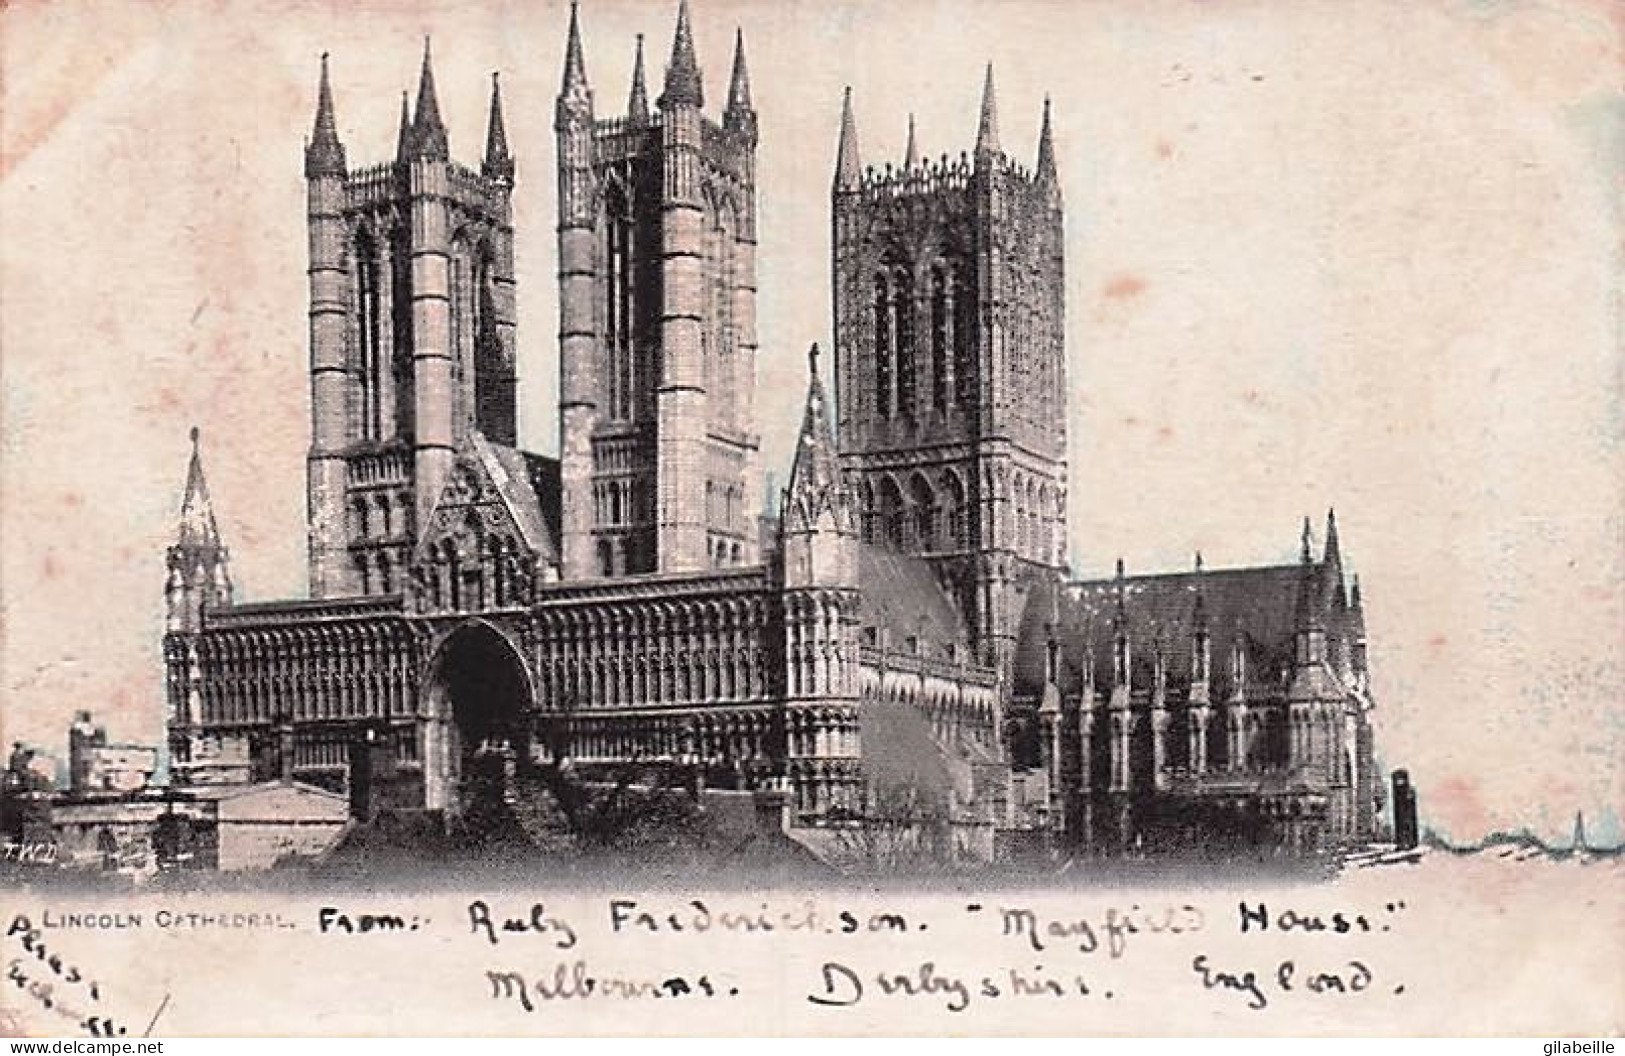 T.W.D.
LINCOLN CATHEDRAL. From:- Ruby Frederickson. "Mayfield House."
Melbourne. Derbyshire. England.
Please
Exchange
delcampe.net
gilabeille